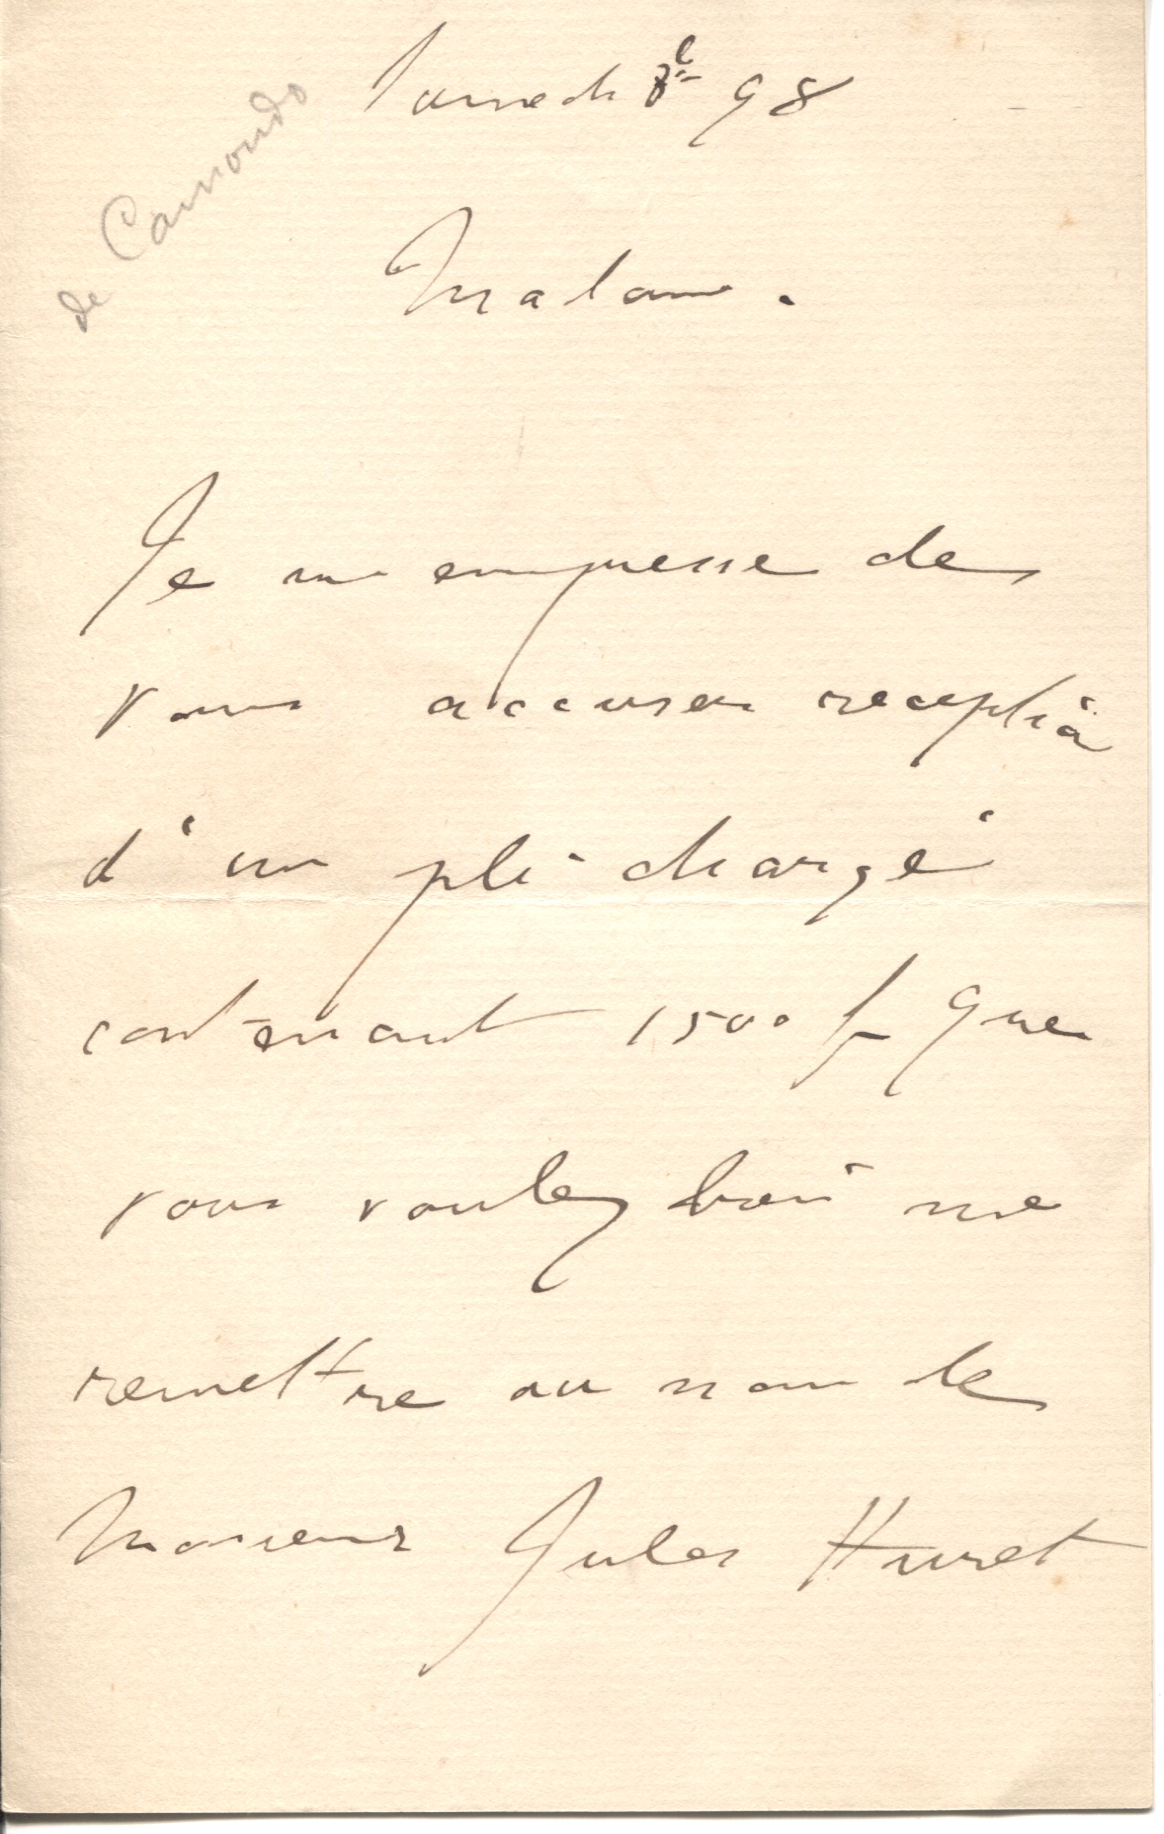 de Camondo
Samedi 98
Madame.
Je m'empresse de
vous accuser reception
d'un pli chargé
contenant 1500 f que
vous voulez bien me
remettre au nom de
Monsieur Jules Huret